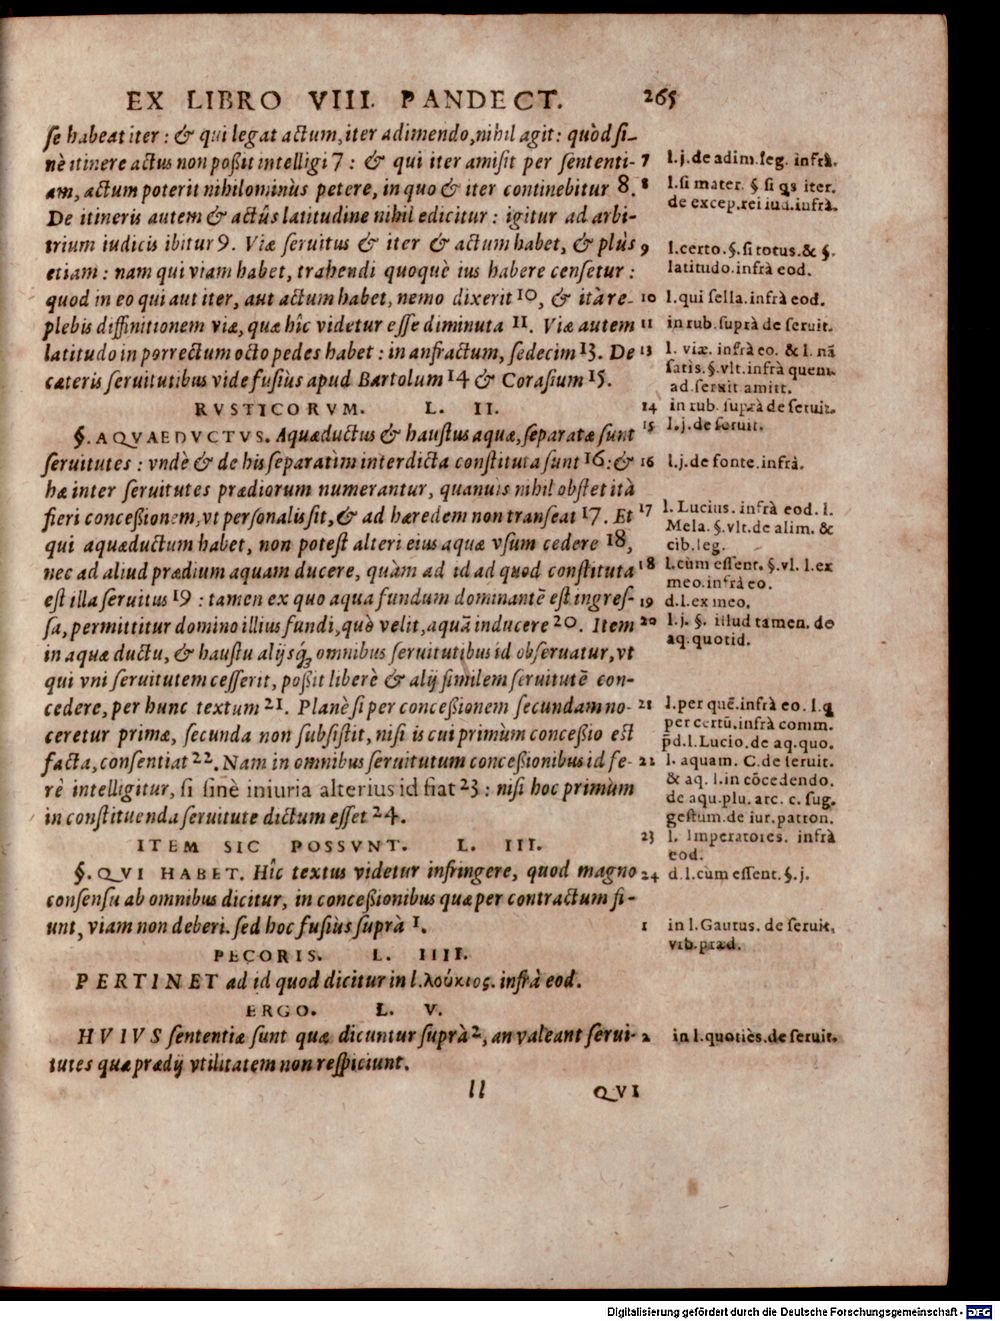 EX LIBRO VIII. PANDECT. 265
se habeat iter: & qui legat actum, iter adimendo, nihil agit: quòd si-
nè itinere actus non poßit intelligi 7: & qui iter amisit per sententi-
am, actum poterit nihilominùs petere, in quo & iter continebitur 8.
De itineris autem & actûs latitudine nihil edicitur: igitur ad arbi-
trium iudicis ibitur 9. Viæ seruitus & iter & actum habet, & plùs
etiam: nam qui viam habet, trahendi quoquè ius habere censetur:
quod in eo qui aut iter, aut actum habet, nemo dixerit 10, & itàre-
plebis diffinitionem viæ, quæ hîc videtur esse diminuta 11. Viæ autem
latitudo in porrectum octo pedes habet: in anfractum, sedecim 13. De
cæteris seruitutibus vide fusiùs apud Bartolum 14 & Corasium 15.
RVSTICORVM. L. II.
§. AQVAEDVCTVS. Aquæductus & haustus aquæ, separatæ sunt
seruitutes: vndè & de his separatìm interdicta constituta sunt 16: &
hæ inter seruitutes prædiorum numerantur, quanuis nihil obstet ità
fieri conceßionem, vt personalis sit, & ad hæredem non transeat 17. Et
qui aquæductum habet, non potest alteri eius aquæ vsum cedere 18,
nec ad aliud prædium aquam ducere, quàm ad id ad quod constituta
est illa seruitus 19: tamen ex quo aqua fundum dominantē est ingres-
sa, permittitur domino illius fundi, quò velit, aquā inducere 20. Item
in aquæ ductu, & haustu alijsq́; omnibus seruitutibus id obseruatur, vt
qui vni seruitutem cesserit, poßit liberè & alij similem seruitutē con-
cedere, per hunc textum 21. Planè si per conceßionem secundam no-
ceretur primæ, secunda non subsistit, nisi is cui primùm conceßio est
facta, consentiat 22. Nam in omnibus seruitutum conceßionibus id fe-
rè intelligitur, si sinè iniuria alterius id fiat 23: nisi hoc primùm
in constituenda seruitute dictum esset 24.
ITEM SIC POSSVNT. L. III.
§. QVI HABET. Hîc textus videtur infringere, quod magno
consensu ab omnibus dicitur, in conceßionibus quæ per contractum fi-
unt, viam non deberi. sed hoc fusiùs suprà 1.
PECORIS. L. IIII.
PERTINET ad id quod dicitur in l. λούκιος. infrà eod.
ERGO. L. V.
HVIVS sententiæ sunt quæ dicuntur suprà 2, an valeant serui-
tutes quæ prædij vtilitatem non respiciunt.
ll QVI
7 l.j. de adim. leg. infrà.
8 l. si mater. § si qs iter.
de excep. rei iud. infrà.
9 l. certo. §. si totus. & §.
latitudo. infrà eod.
10 l. qui sella. infrà eod.
11 in rub. suprà de seruit.
13 l. viæ. infrà eo. & l. nā
satis. §. vlt. infrà quem.
ad. seruit amitt.
14 in rub. suprà de seruit.
15 l.j. de seruit.
16 l.j. de fonte. infrà.
17 l. Lucius. infrà eod. l.
Mela. §. vlt. de alim. &
cib. leg.
18 l. cùm essent. §. vl. l. ex
meo. infrà eo.
19 d. l. ex meo.
20 l.j. §. illud tamen. de
aq. quotid.
21 l. per quē. infrà eo. l. q
per certū. infrà comm.
p̄d. l. Lucio. de aq. quo.
22 l. aquam. C. de seruit.
& aq. l. in cōcedendo.
de aqu. plu. arc. c. sug.
gestum. de iur. patron.
23 l. Imperatores. infrà
eod.
24 d. l. cùm essent. §. j.
1 in l. Gautus. de seruit.
vrb. præd.
2 in l. quotiès. de seruit.
Digitalisierung gefördert durch die Deutsche Forschungsgemeinschaft - DFG